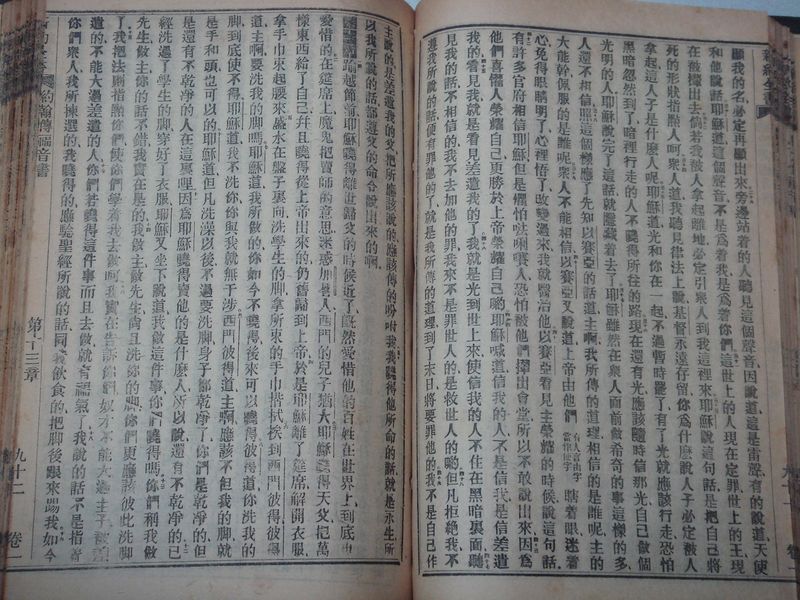 顯我的名必定再顯出來旁邊站着的人聽見這個聲音因說這是雷聲有的說道天使
和他說話耶穌道這個聲音不是爲着我是爲着你們這世上的人現在定罪世上的王現
在被攆出去倘若我被人拿起離地必定引衆人到我這裡來耶穌說這句話是把自己將
死的形狀指點人呵衆人道我聽見律法上說基督永遠存留你爲什麼說人子必定被人
拿起這人子是什麼人呢耶穌道光和你在一起不過暫時罷了有了光就應該行走恐怕
黑暗忽然到了暗裡行走的人不曉得所往的路現在還有光應該隨時信那光自己做個
光明的人耶穌說完了這話就離藏着去了耶穌雖然在衆人面前做希奇的事這樣的多
人還不相信照這個樣應了先知以賽亞的話道主啊我所傳的道理相信的是誰呢主的
大能幹佩服的是誰呢衆人不能相信以賽亞又說道上帝由他們 瞎着眼迷着
心免得眼睛明了心裡悟了改變過來我就醫治他以賽亞看見主榮耀的時候說這句話
有許多官府相信耶穌但是懼怕𠵽唎賽人恐怕被他們攆出會堂所以不敢說出來因爲
他們喜懽人榮耀自己更勝於上帝榮耀自己喲耶穌喊道信我的人不是信我是信差遣
我的看見我就是看見差遣我的了我就是光到世上來使信我的人不住在黑暗裏面聽
見我的話不相信的我不去加他的罪我來不是罪世人的是救世人的喲但凡拒絕我不
遵我所說的話便有罪他的了就是我所傳的道理到了末日將要罪他的我不是自己作
主說的是差遣我的父把所應該說的應該傳的吩咐我我曉得他所命的話就是永生所
以我所說的話都遵父的命令說出來的啊
踰越節前耶穌曉得離世歸父的時候近了既然愛惜他的百姓在世界上到底也
愛惜的在筵席上魔鬼把賣師的意思迷惑加畧人西門的兒子猶大耶穌曉得天父把萬
樣東西給了自己幷且曉得從上帝出來的仍舊歸到上帝於是耶穌離了筵席解開衣服
拿手巾束起腰來盛水在盤子裏向洗學生的脚拿所束的手巾揩拭挨到西門彼得彼得
道主啊要洗我的脚嗎耶穌道我所做的你如今不曉得後來可以曉得彼得道你洗我的
脚到底使不得耶穌道我不洗你你與我就無干涉西門彼得道主啊應該不但我的脚就
是手和頭也可以的耶穌道但凡洗澡以後不過要洗脚身子都乾淨了你們是乾淨的但
是還有不乾淨的人在這裏哩因爲耶穌曉得賣他的是什麼人所以說還有不乾淨的已
經洗過了學生的脚穿好了衣服耶穌又坐下說道我做這件事你們曉得嗎你們稱我做
先生做主你的話不錯我實在是的我做主做先生尚且洗你的脚你們更應該彼此洗脚
了我把法則指點你們使你們學着我去做呵我實在告訴你們奴才不能大過主子被差
遣的不能大過差遣的人你們若曉得這件事而且去做就有福氣了我說的話不是指着
你們衆人我所揀選的我曉得的應驗聖經所說的話同我飲食的把脚後跟來踢我如今
約翰傳福音書
第十三章
九十二
卷一